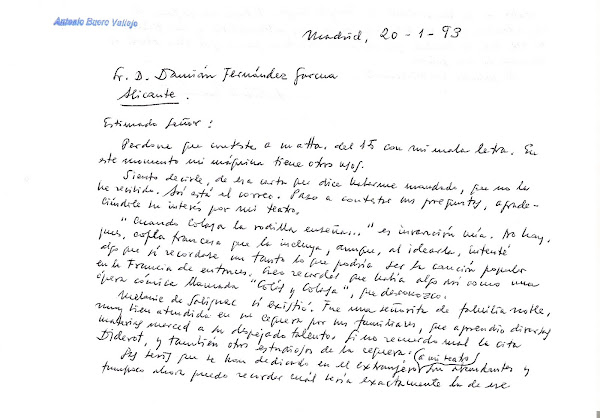 Antonio Buero Vallejo
Madrid, 20-1-93
Sr. D. Damián Fernández
Alicante.
Estimado Señor:
Perdone que conteste a su atta. del 15 con mi mala letra. En
este momento mi máquina tiene otro uso.
Siento decirle, de esa carta que dice haberme mandado, que no la
he recibido. Así está el correo. Paso a contestar sus preguntas, agrade-
ciéndole su interés por mi teatro.
"Cuando Colasa la rodilla enseña..." es invención mía. No hay,
pues, copla francesa que la incluya, aunque, al idearla, intenté
algo que sí recordase un tanto lo que podría ser la canción popular
en la Francia de entonces. Creo recordar que había algo así como una
ópera cómica llamada "Colás y Colasa", que desconozco.
Melanie de Salignac sí existió. Fue una señorita de familia noble,
muy bien atendida en su ceguera por sus familiares, que aprendió diversas
materias merced a su despejado talento. Si no recuerdo mal la cita
Diderot, y también otros estudiosos de la ceguera.
Las tesis que se han dedicado en el extranjero (a mi teatro) son abundantes y
tampoco ahora puedo recordar cuál sería exactamente la de ese